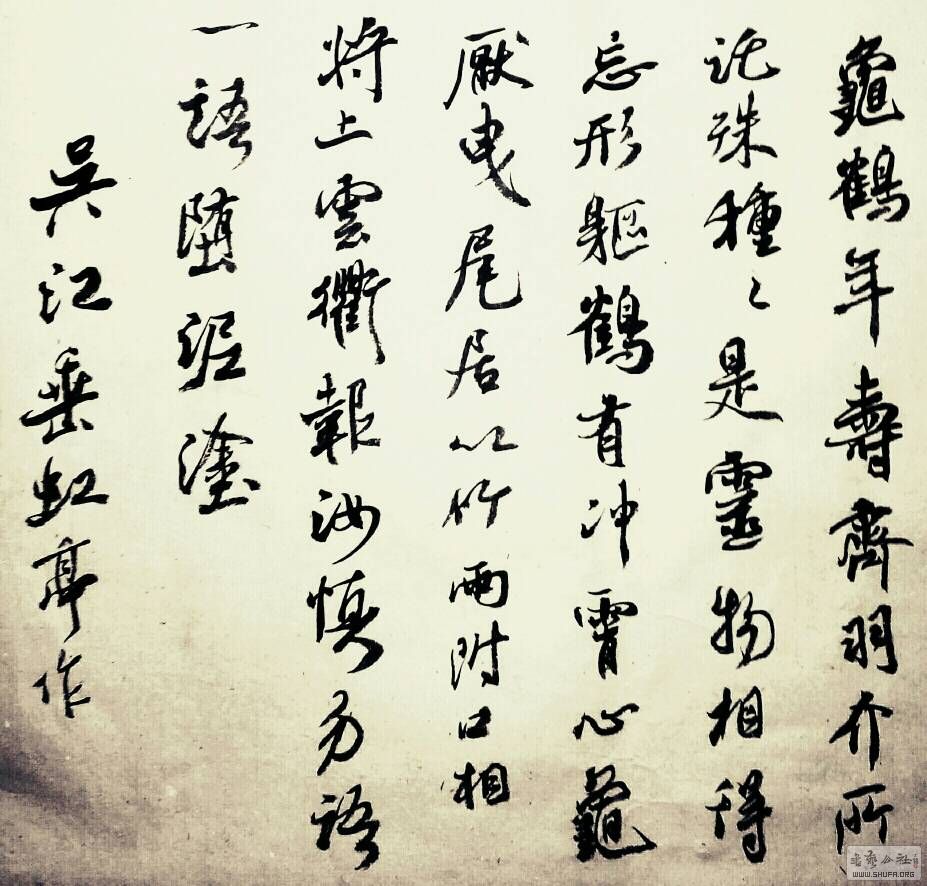 龜鶴年壽齊羽介所
託殊種〻是靈物相得
忘形軀鶴有冲霄心龜
厭曳尾居以竹兩附口相
將上雲衢報汝慎勿語
一語墮泥塗
吳江垂虹亭作
WWW.SHUFA.ORG